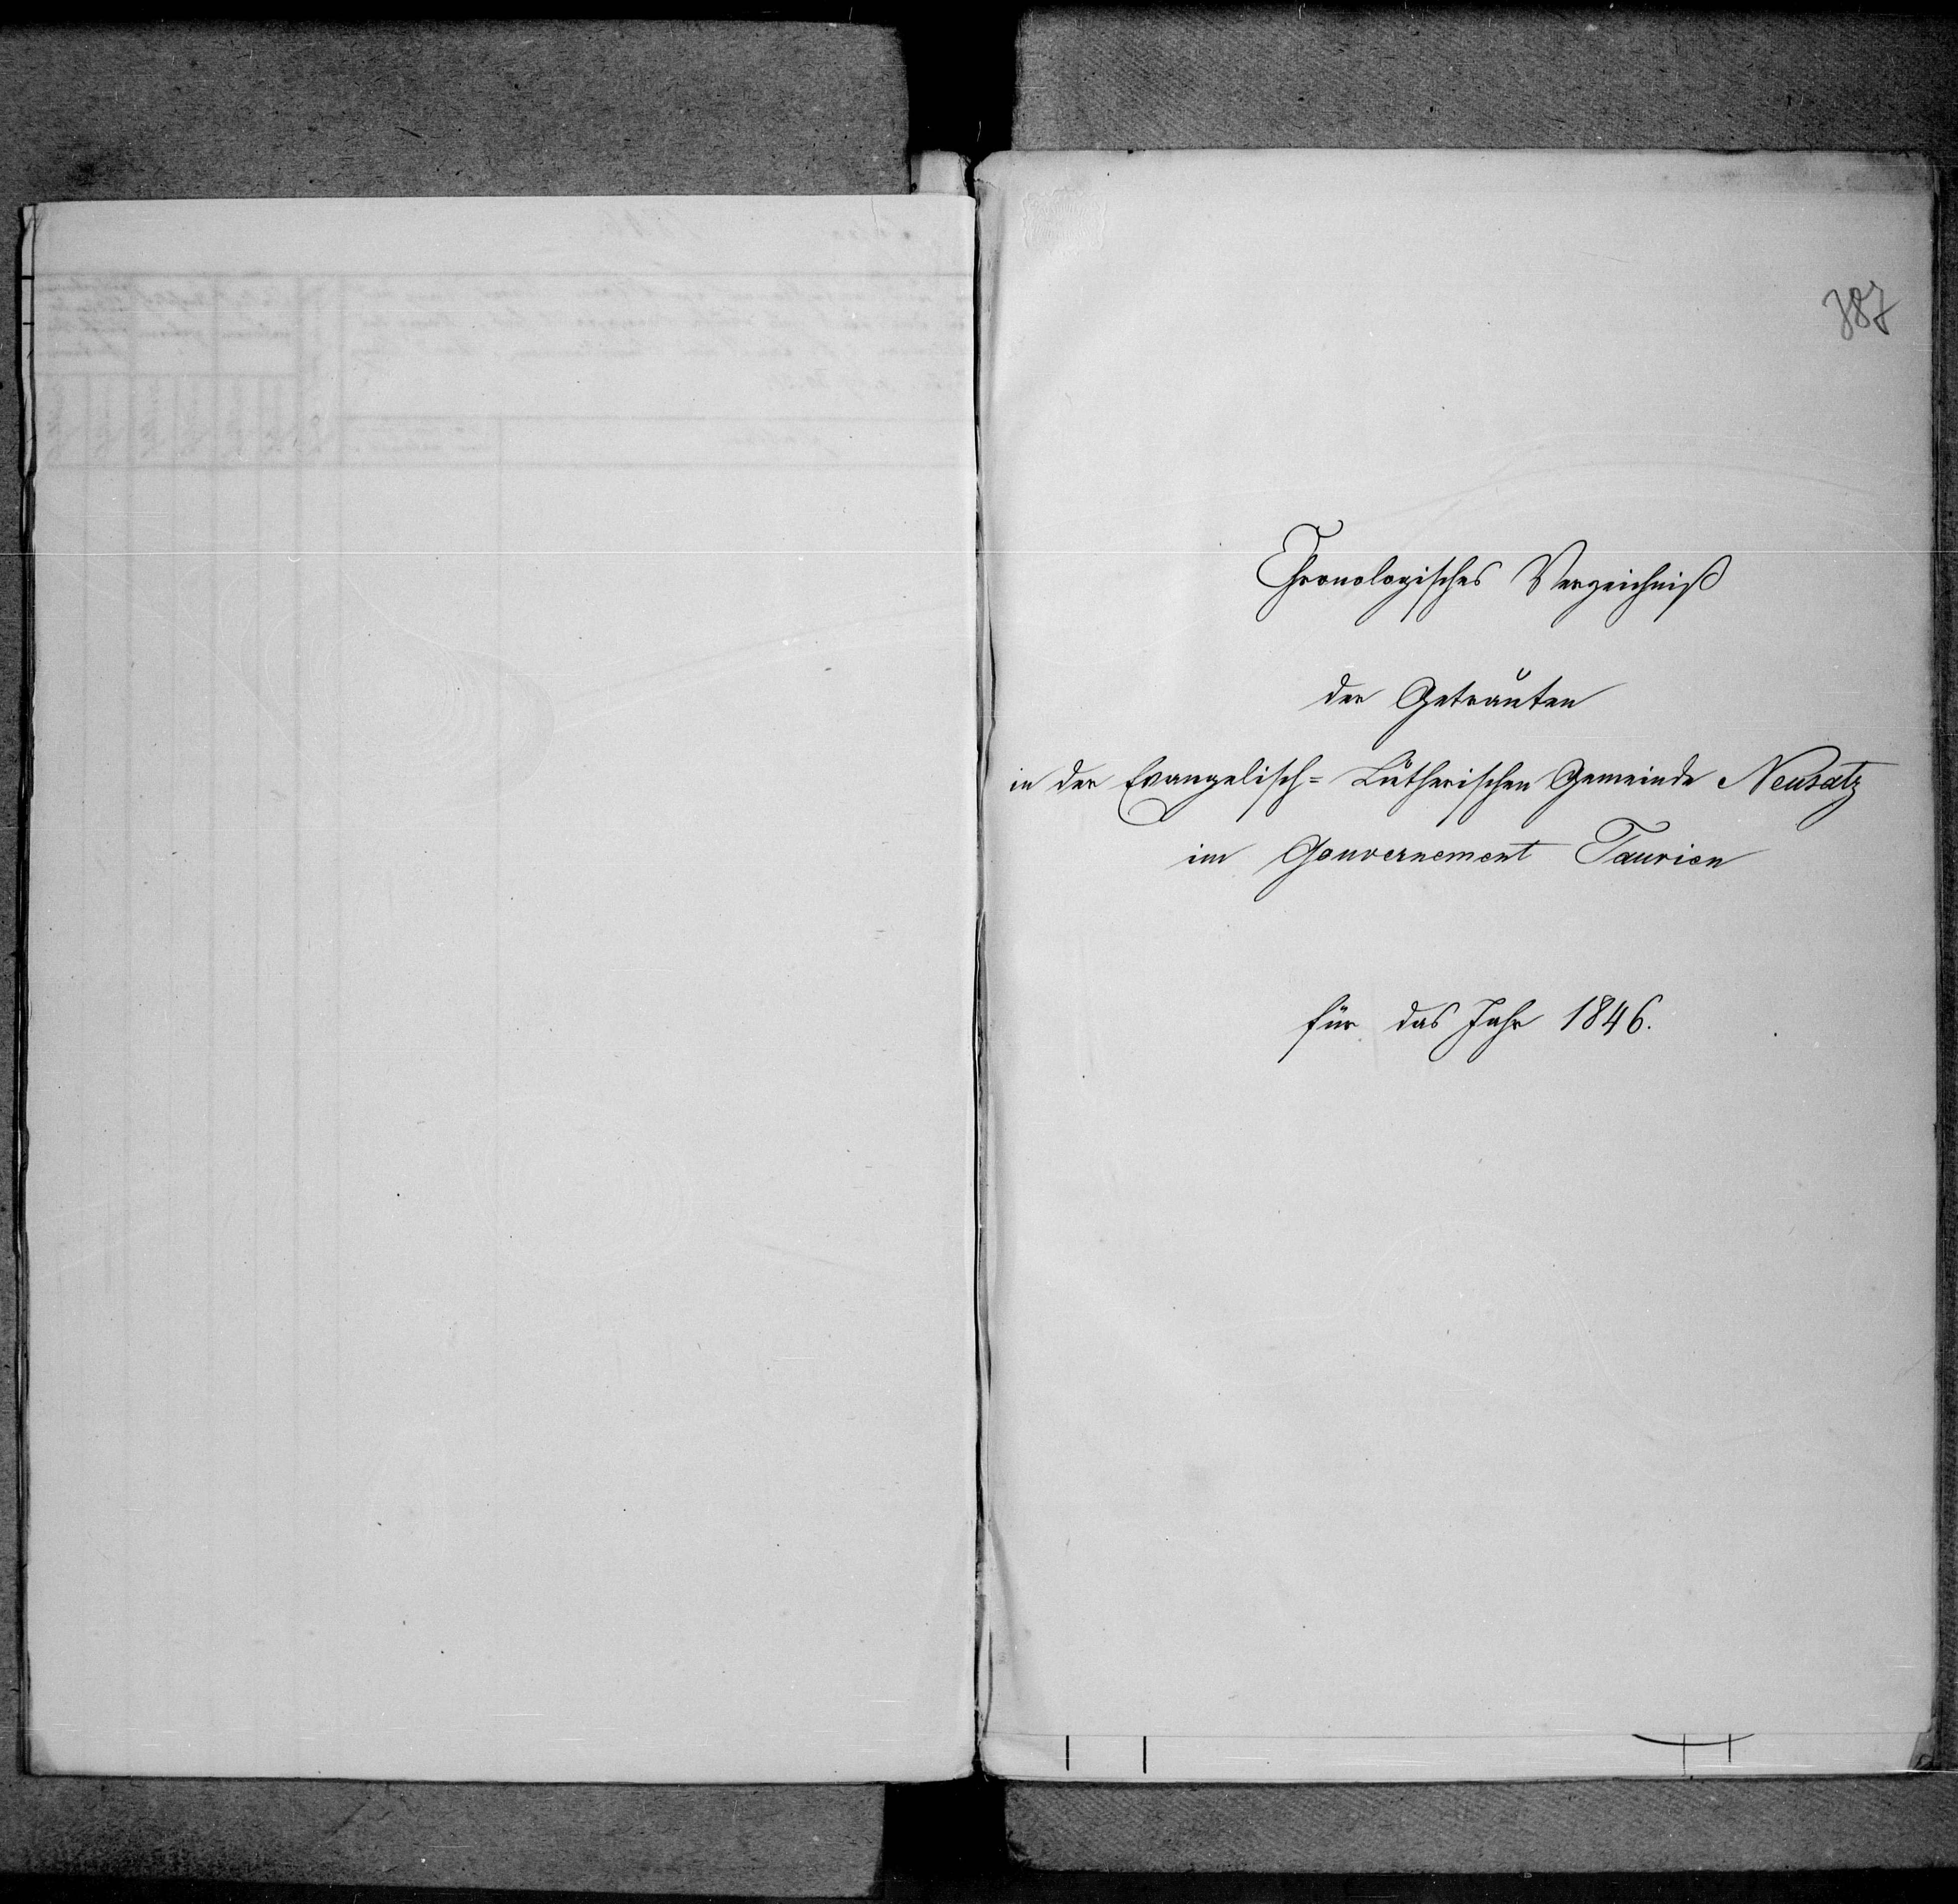 387
Chronologisches Verzeichniß
der Getrauten
in der Evangelisch= Lutherischen Gemeinde Neusatz
im Gouvernement Taurien
für das Jahr 1846.